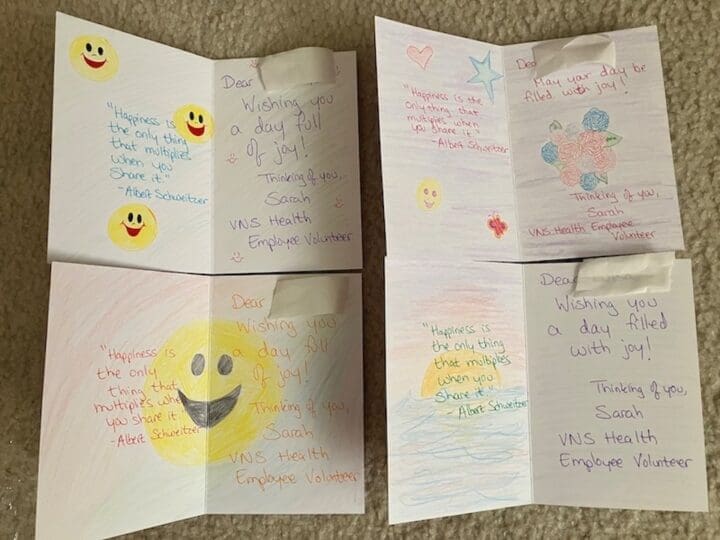 "Happiness is
the only thing
that multiplies
when you
share it."
- Albert Schweitzer
Dear
Wishing you
a day full
of joy!
Thinking of you,
Sarah
VNS Health
Employee Volunteer
"Happiness is the
only thing that
multiplies when
you share it."
- Albert Schweitzer
Dea
May your day be
filled with joy!
Thinking of you,
Sarah
VNS Health Employee
Volunteer
"Happiness is
the only
thing that
multiplies when
you share it."
- Albert Schweitzer
Dear
Wishing you
a day full
of joy!
Thinking of you,
Sarah
VNS Health
Employee Volunteer
"Happiness is
the only thing
that multiplies
when you
share it."
- Albert Schweitzer
Dear
Wishing you
a day filled
with joy!
Thinking of you,
Sarah
VNS Health
Employee Volunteer